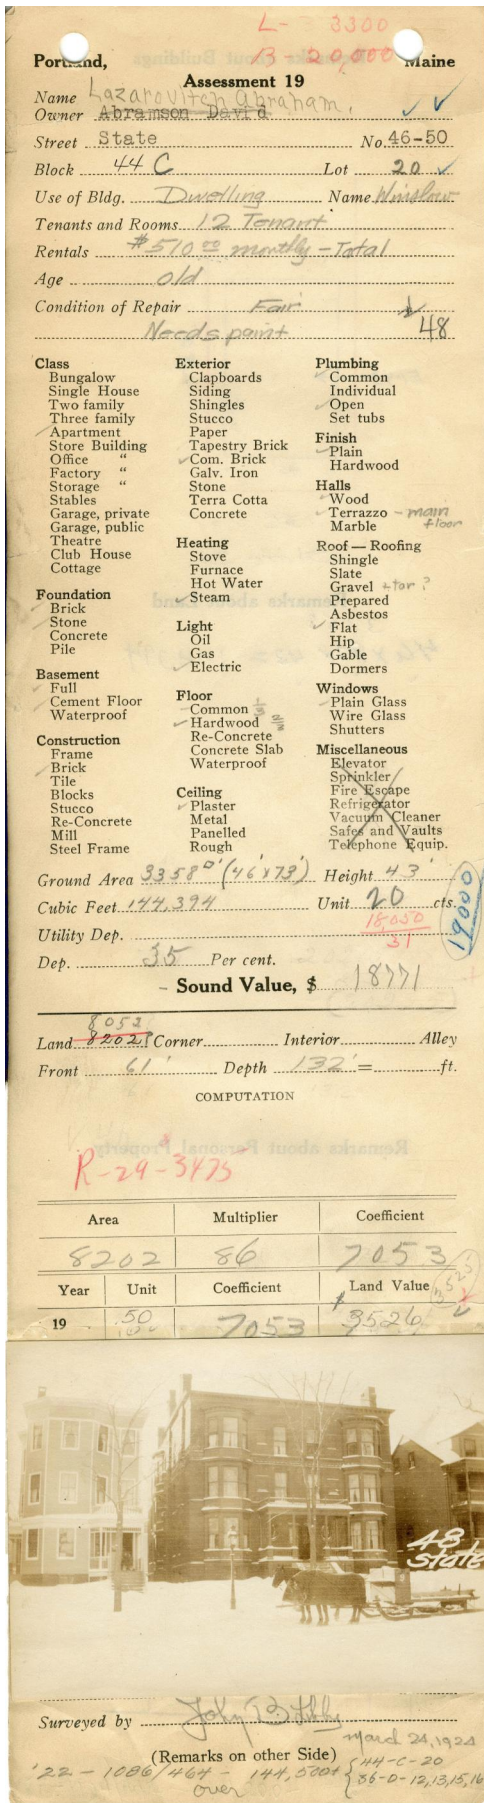 L- 3300
B- 20,000
Portland, Maine
Assessment 19
Name Lazarovitch Abraham.
Owner Abramson David
Street State No. 46-50
Block 44 C Lot 20
Use of Bldg. Dwelling Name Winslow
Tenants and Rooms 12 Tenant
Rentals $510 00 monthly - Total
Age old
Condition of Repair Fair
Needs paint 48
Class
Bungalow
Single House
Two family
Three family
Apartment
Store Building
Office "
Factory "
Storage "
Stables
Garage, private
Garage, public
Theatre
Club House
Cottage
Foundation
Brick
Stone
Concrete
Pile
Basement
Full
Cement Floor
Waterproof
Construction
Frame
Brick
Tile
Blocks
Stucco
Re-Concrete
Mill
Steel Frame
Exterior
Clapboards
Siding
Shingles
Stucco
Paper
Tapestry Brick
Com. Brick
Galv. Iron
Stone
Terra Cotta
Concrete
Heating
Stove
Furnace
Hot Water
Steam
Light
Oil
Gas
Electric
Floor
Common 1/3
Hardwood 2/3
Re-Concrete
Concrete Slab
Waterproof
Ceiling
Plaster
Metal
Panelled
Rough
Plumbing
Common
Individual
Open
Set tubs
Finish
Plain
Hardwood
Halls
Wood
Terrazzo - main floor
Marble
Roof — Roofing
Shingle
Slate
Gravel + tar ?
Prepared
Asbestos
Flat
Hip
Gable
Dormers
Windows
Plain Glass
Wire Glass
Shutters
Miscellaneous
Elevator
Sprinkler
Fire Escape
Refrigerator
Vacuum Cleaner
Safes and Vaults
Telephone Equip.
Ground Area 3358□' (46'x73') Height 43'
Cubic Feet 144,394 Unit 20 cts.
19000
Utility Dep. 18,050
31
Dep. 35 Per cent.
Sound Value, $ 18771
8052
Land 8202 Corner Interior Alley
Front 61' Depth 132' = ft.
COMPUTATION
R-29-3475
Area Multiplier Coefficient
8202 86 7053
Year Unit Coefficient Land Value 3525
19 .50 7053 $3526
48
State
Surveyed by John B Libby
March 24, 1924
(Remarks on other Side)
'22 - 1086/464 - 144,500+ { 44-C-20
36-D-12,13,15,16
over